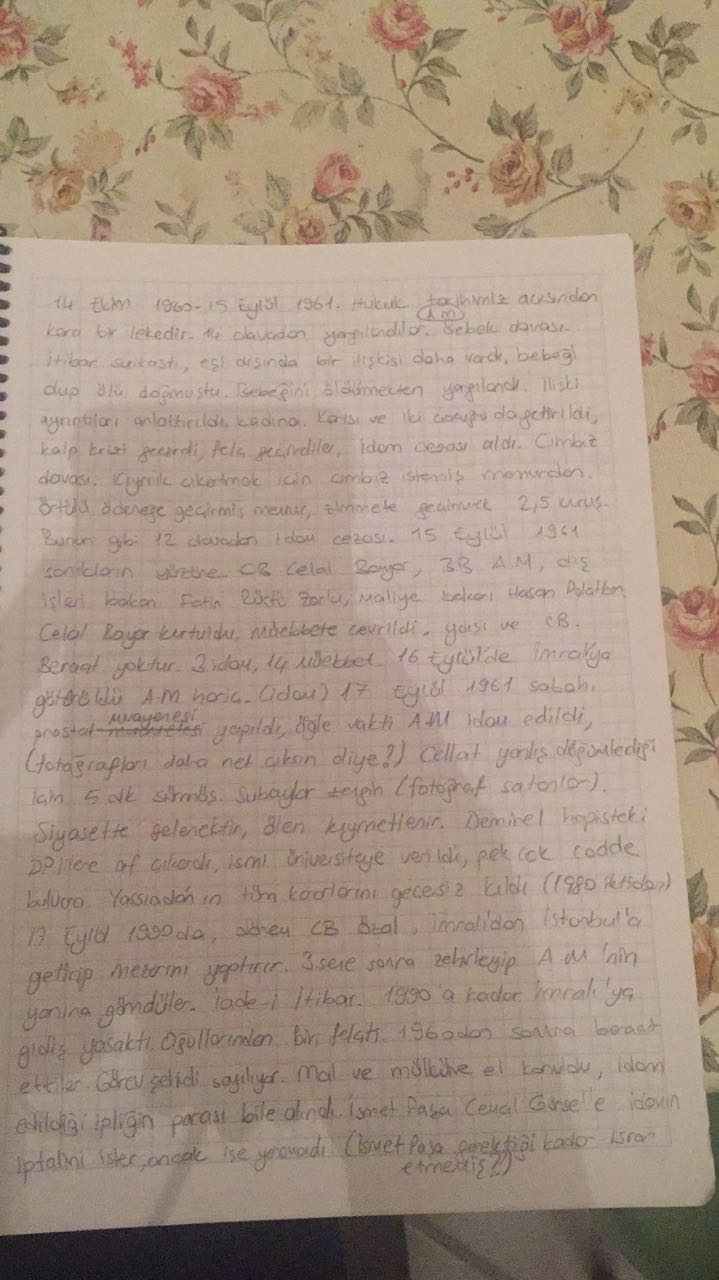 14 Ekim 1960-15 Eylül 1961. Hukuk tarihimiz açısından
(A M)
kara bir lekedir. 14 davadan yargılandılar. Bebek davası.
itibar suikasti, eşi dışında bir ilişkisi daha vardı, bebeği
olup ölü doğmuştu. Bebeğini öldürmekten yargılandı. İlişki
ayrıntıları anlattırıldı, kadına. Karısı ve iki çocuğu da getirildi,
kalp krizi geçirdi, felç geçirdiler, idam cezası aldı. Cımbız
davası. Kıymık çıkartmak için cımbız istemiş memurdan.
Örtülü ödeneğe geçirmiş memur, zimmete geçirmek 2,5 kuruş.
Bunun gibi 12 davadan idam cezası. 15 Eylül 1961
sanıkların yüzüne CB Celal Bayar, BB A.M, dış
işleri bakanı Fatin Rüştü Zorlu, maliye bakanı Hasan Polatkan,
Celal Bayar kurtuldu, müebbete çevrildi. yaşı ve CB.
Beraat yoktur. 3 idam, 14 Müebbet. 16 Eylül'de İmralı'ya
götürüldü A.M hariç. (idam) 17 Eylül 1961 sabahı
muayenesi
prostat yapıldı, öğle vakti A.M idam edildi,
(fotoğrafları daha net çıksın diye?) Cellat yanlış düğümlediği
için 5 dk sürmüş. Subaylar zengin (fotoğraf satanlar).
Siyasette gelenektir, ölen kıymetlenir. Demirel hapisteki
DP'lilere af çıkardı, ismi üniversiteye verildi, pek çok cadde
bulvara. Yassıada'nın tüm kararlarını geçersiz kıldı (1980 iktidarı)
17 Eylül 1990 da, dönem CB Özal, İmralı'dan İstanbul'a
getirip mezarını yaptırır. 3 sene sonra zehirleyip A M 'nin
yanına gömdüler. İade-i İtibar. 1990'a kadar İmralı'ya
gidiş yasaktı. Oğullarından biri felçti. 1960dan sonra beraat
ettiler. Görev şehidi sayılıyor. Mal ve mülküne el konuldu, idam
edildiği ipliğin parası bile alındı. İsmet Paşa Cemal Gürsel'le idamın
iptalini ister, ancak işe yaramadı. (İsmet Paşa gerektiği kadar ısrar
etmemiş?)